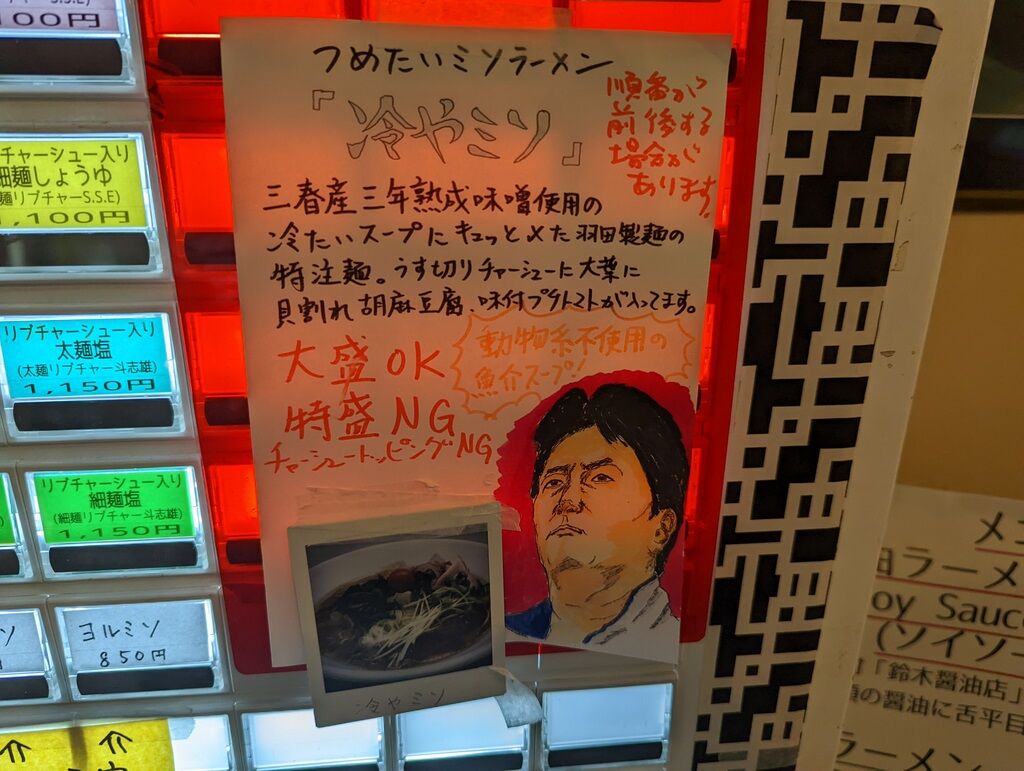 つめたいミソラーメン
『冷やミソ』
順番が
前後する
場合が
あります。
三春産三年熟成味噌使用の
冷たいスープにキュッと〆た羽田製麺の
特注麺。うす切りチャーシューに大葉に
貝割れ胡麻豆腐、味付プチトマトが入ってます。
動物系不使用の
魚介スープ!
大盛OK
特盛NG
チャーシュートッピングNG
冷やミソ
100円
チャーシュー入り
細麺しょうゆ
麺リプチャーS.S.E)
1,100円
リプチャーシュー入り
太麺塩
(太麺リプチャー斗志雄)
1,150円
リプチャーシュー入り
細麺塩
(細麺リプチャー斗志雄)
1,150円
ヨルミソ
850円
メニ
ラーメ
oy Sauc
(ソイソー
「鈴木醤油店」
の醤油に舌平目
ラーメン